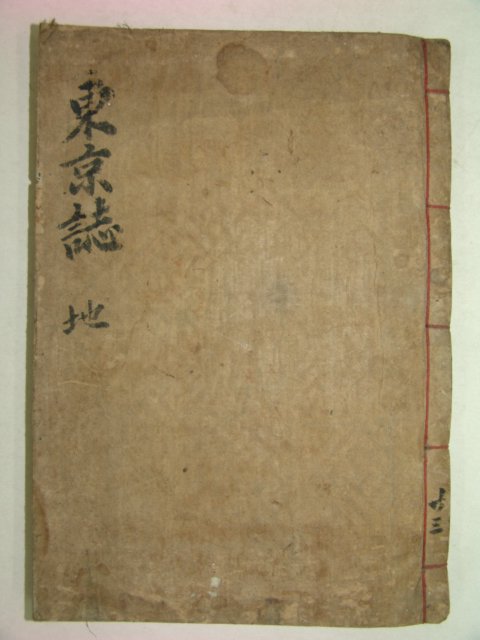 東京誌 地
共三